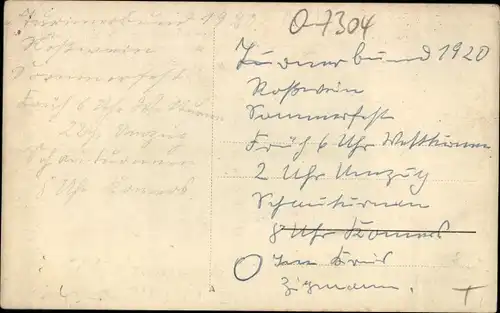 Turnerbund 192
Roßwein
Sommerfest
Früh 6 Uhr Wetturnen
2 Uhr Umzug
Schauturnen
8 Uhr Kommers
O-7304
Turnerbund 1920
Roßwein
Sommerfest
Früh 6 Uhr Wetturnen
2 Uhr Umzug
Schauturnen
8 Uhr Kommers
A